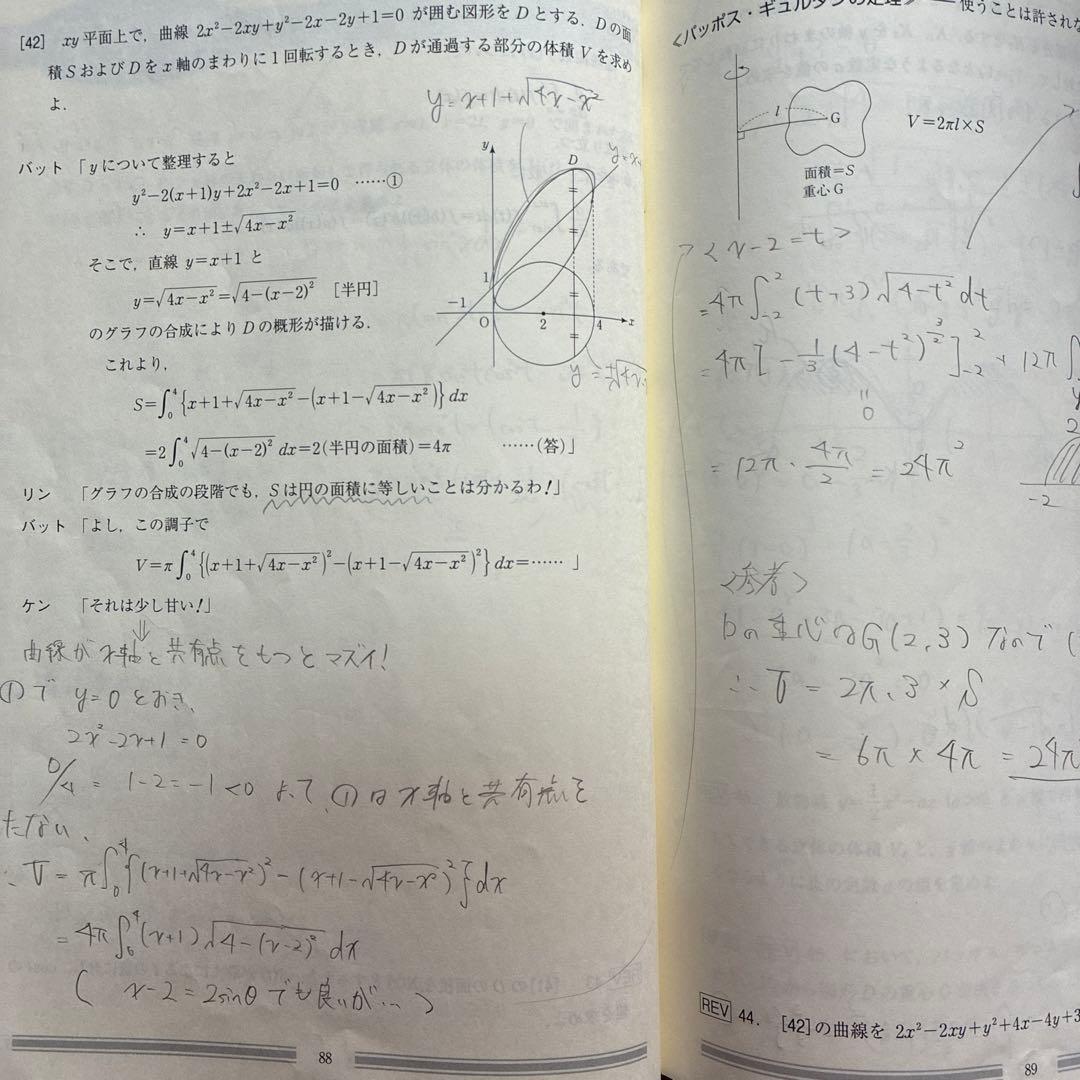 [42] xy平面上で，曲線 2x²−2xy+y²−2x−2y+1=0 が囲む図形を D とする．D の面
積 S および D を x 軸のまわりに1回転するとき，D が通過する部分の体積 V を求め
よ．
y=x+1+√(4x−x²)
バット 「y について整理すると
y²−2(x+1)y+2x²−2x+1=0 ……①
∴ y=x+1±√(4x−x²)
そこで，直線 y=x+1 と
y=√(4x−x²)=√(4−(x−2)²) [半円]
のグラフの合成により D の概形が描ける．
これより，
y
D
1
−1
O
2
4
x
S=∫₀⁴{x+1+√(4x−x²)−(x+1−√(4x−x²))}dx
=2∫₀⁴√(4−(x−2)²) dx=2(半円の面積)=4π ……(答)」
リン 「グラフの合成の段階でも，S は円の面積に等しいことは分かるわ！」
バット 「よし，この調子で
V=π∫₀⁴{(x+1+√(4x−x²))²−(x+1−√(4x−x²))²}dx=…… 」
ケン 「それは少し甘い！」
⇓
曲線がx軸と共有点をもつとマズイ!
①で y=0 とおき、
2x²−2x+1=0
D/4 = 1−2=−1<0 よって ①はx軸と共有点を
たない、
∴ V = π∫₀⁴{(x+1+√(4x−x²))²−(x+1−√(4x−x²))²}dx
=4π∫₀⁴(x+1)√(4−(x−2)²) dx
( x−2=2sinθでも良いが… )
88
《パップス・ギュルダンの定理》 使うことは許されな
l
G
V=2πl×S
面積=S
重心 G
<x−2=t>
=4π∫₋₂²(t+3)√(4−t²)dt
=4π[−1/3(4−t²)^(3/2)]₋₂² + 12π∫
॥
0
=12π・4π/2 = 24π²
2
−2
<参考>
Dの重心はG(2,3)なので(
∴ V = 2π・3×S
=6π×4π = 24π
REV 44. [42]の曲線を 2x²−2xy+y²+4x−4y+3
89